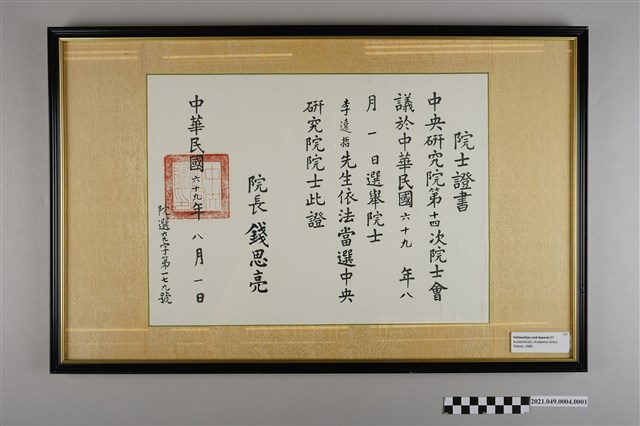 院士證書
中央研究院第十四次院士會
議於中華民國六十九年八
月一日選舉院士
李遠哲先生依法當選中央
研究院院士此證
院長錢思亮
中華民國六十九年八月一日
院選六九字第一七九號
Fellowships and Awards 01
Academician, Academia Sinica
Taiwan, 1980.
2021.049.0004.0001